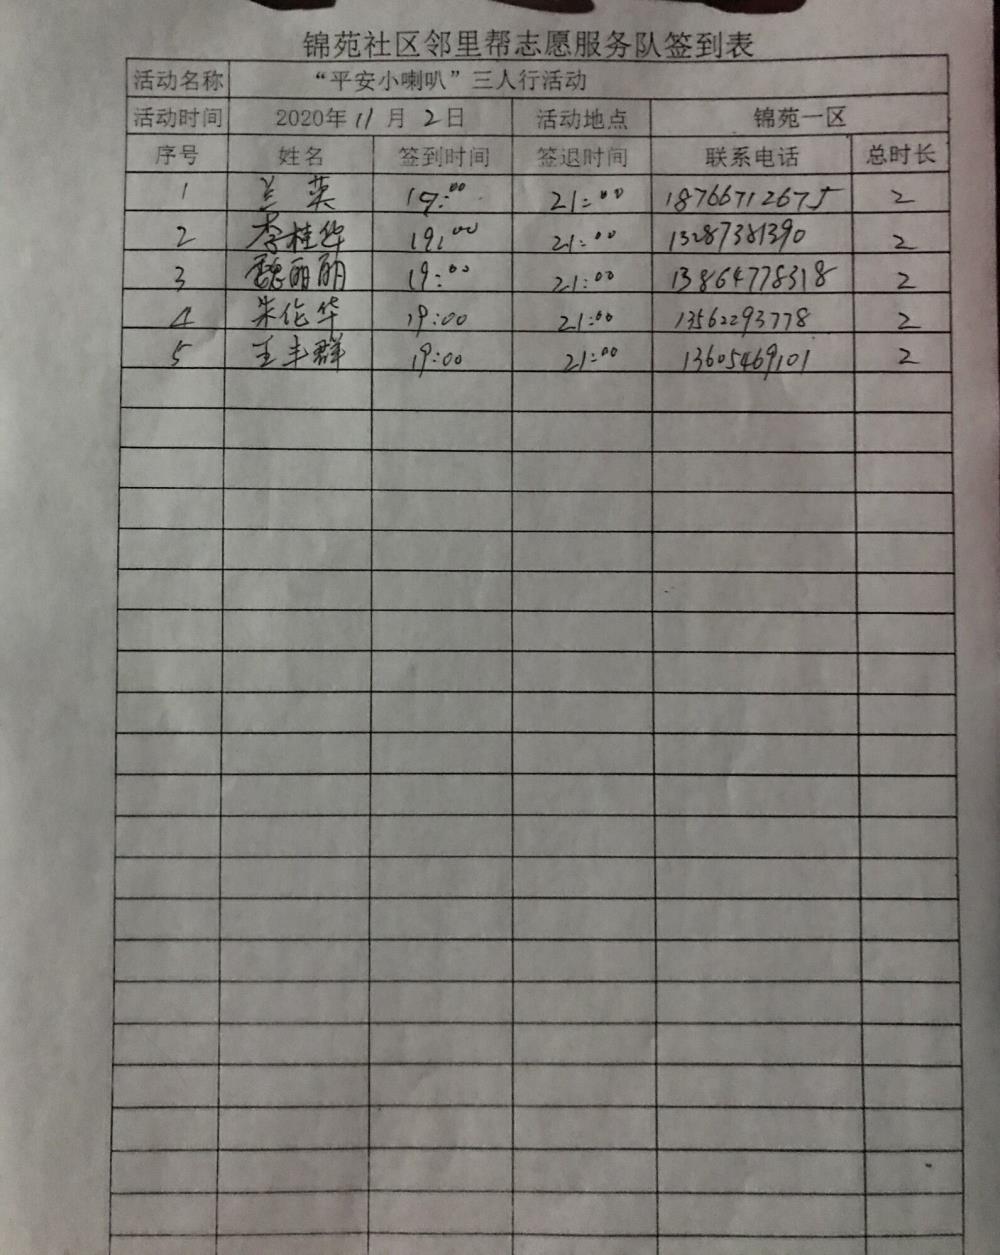 锦苑社区邻里帮志愿服务队签到表
活动名称 “平安小喇叭”三人行活动
活动时间 2020年 11 月 2 日 活动地点 锦苑一区
序号 姓名 签到时间 签退时间 联系电话 总时长
1 兰英 19:00 21:00 18766712675 2
2 李桂华 19:00 21:00 13287381390 2
3 魏丽丽 19:00 21:00 13864778318 2
4 朱伦华 19:00 21:00 13562293778 2
5 王丰群 19:00 21:00 13605469101 2